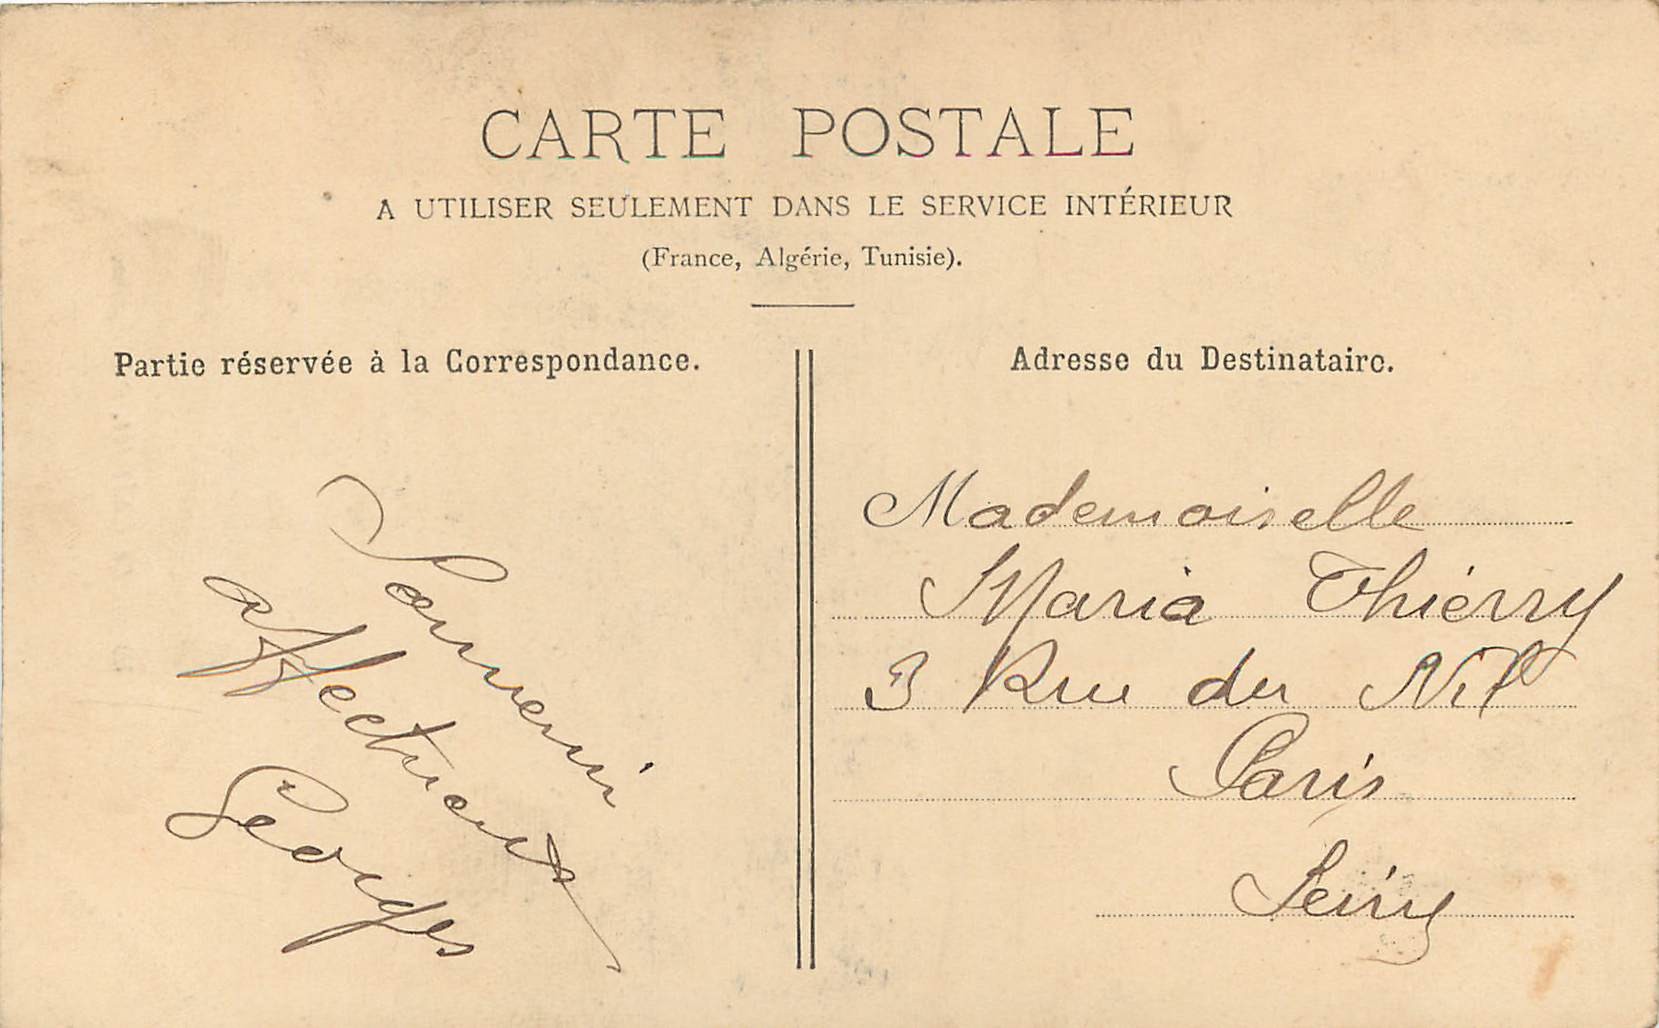 CARTE POSTALE
A UTILISER SEULEMENT DANS LE SERVICE INTÉRIEUR
(France, Algérie, Tunisie).
Partie réservée à la Correspondance.
Souvenir
affectueux
Georges
Adresse du Destinataire.
Mademoiselle
Maria Thiérry
3 Rue du Nil
Paris
Seine